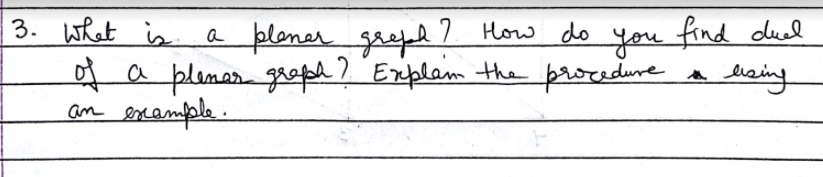 3. What is a planar graph? How do you find dual
of a planar graph? Explain the procedure using
an example.